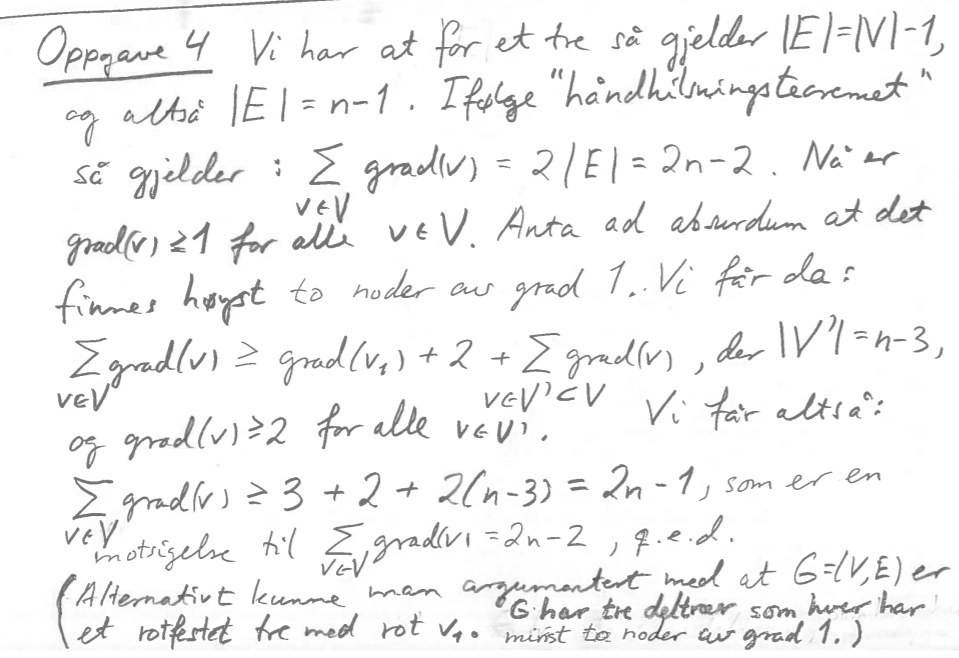 Oppgave 4 Vi har at for et tre så gjelder |E|=|V|-1,
og altså |E| = n-1. Ifølge "håndhilsningsteoremet"
så gjelder : ∑_{v∈V} grad(v) = 2|E| = 2n-2. Nå er
grad(v) ≥ 1 for alle v ∈ V. Anta ad absurdum at det
finnes høyst to noder av grad 1. Vi får da:
∑_{v∈V} grad(v) ≥ grad(v₁) + 2 + ∑_{v∈V'⊂V} grad(v), der |V'| = n-3,
og grad(v) ≥ 2 for alle v ∈ V'. Vi får altså:
∑_{v∈V} grad(v) ≥ 3 + 2 + 2(n-3) = 2n-1, som er en
motsigelse til ∑_{v∈V} grad(v) = 2n-2, q.e.d.
(Alternativt kunne man argumentert med at G=(V,E) er
et rotfestet tre med rot v₁. G har tre deltrær som hver har
minst to noder av grad 1.)